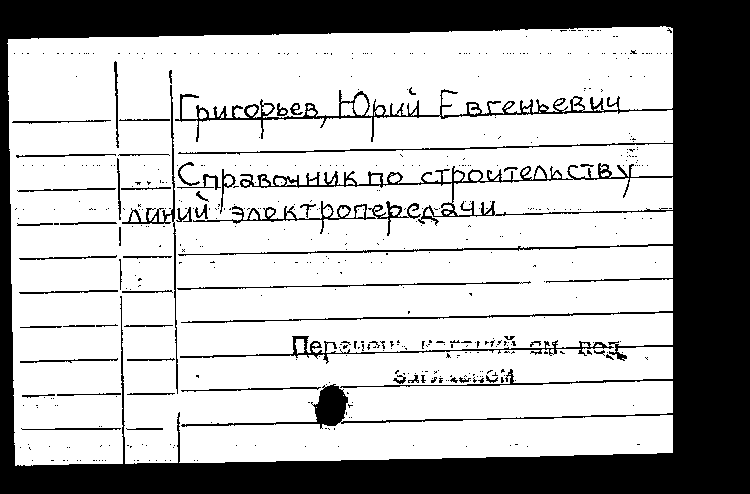 Григорьев, Юрий Евгеньевич
Справочник по строительству
линий электропередачи.
Перечень изданий см. под
заглавием